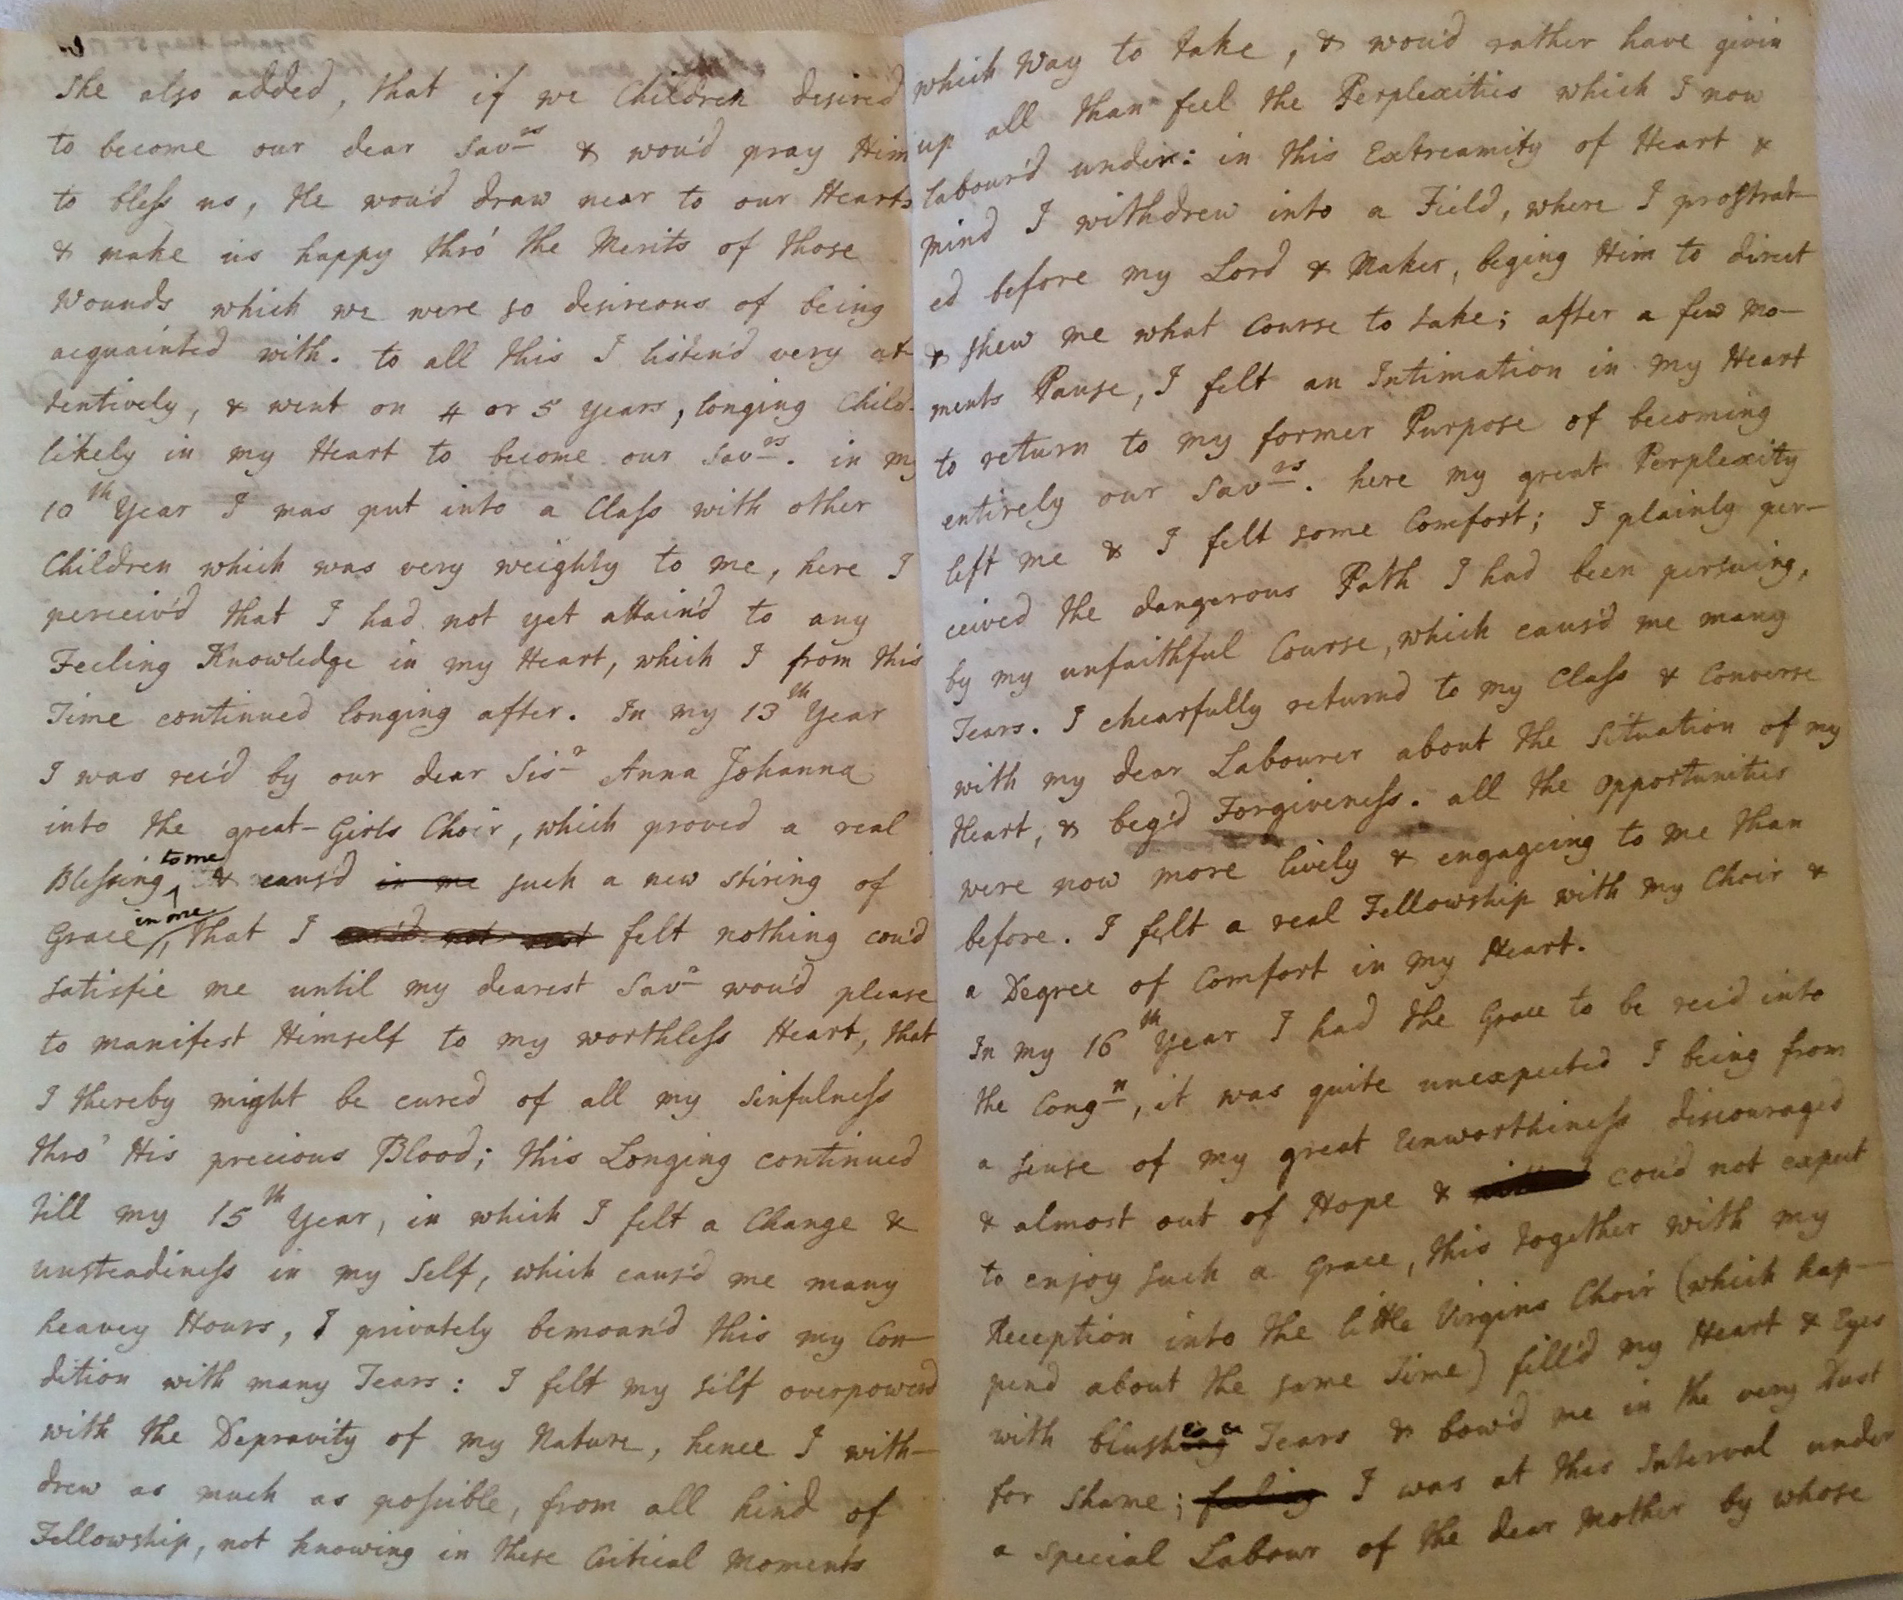 She also added, that if we Children desired
to become our dear Sav^rs & wou'd pray Him
to bless us, He wou'd draw near to our Hearts
& make us happy thro' the Merits of those
Wounds which we were so desireous of being
acquainted with. to all this I listen'd very at-
tentively, & went on 4 or 5 Years, longing Child-
likely in my Heart to become our Sav^rs. in my
10^th Year I was put into a Class with other
Children which was very weighty to me, here I
perceiv'd that I had not yet attain'd to any
Feeling Knowledge in my Heart, which I from this
Time continued longing after. In my 13^th Year
I was rec'd by our dear Sis^r Anna Johanna
into the great-Girls Choir, which proved a real
Blessing to me & caus'd in me such a new stiring of
Grace in me, that I cou'd not rest felt nothing cou'd
satisfie me until my dearest Sav^r wou'd please
to manifest Himself to my worthless Heart, that
I thereby might be cured of all my sinfulness
thro' His precious Blood; this Longing continued
till my 15^th Year, in which I felt a Change &
unsteadiness in my Self, which caus'd me many
heavey Hours, I privately bemoan'd this my Con-
dition with many Tears: I felt my self overpowerd
with the Depravity of my Nature, hence I with-
drew as much as possible, from all kind of
Fellowship, not knowing in these Critical Moments
which Way to take, & wou'd rather have given
up all than feel the Perplexities which I now
labour'd under: in this Extreamity of Heart &
mind I withdrew into a Field, where I prostrat-
ed before my Lord & Maker, beging Him to direct
& shew me what Course to take; after a few Mo-
ments Pause, I felt an Intimation in my Heart
to return to my former Purpose of becoming
entirely our Sav^rs. here my great Perplexity
left me & I felt some Comfort; I plainly per-
ceived the dangerous Path I had been persuing,
by my unfaithful Course, which caus'd me many
Tears. I chearfully returnd to my Class & Converse
with my dear Labourer about the Situation of my
Heart, & beg'd Forgiveness. all the Opportunities
were now more lively & engageing to me than
before. I felt a real Fellowship with my Choir &
a Degree of Comfort in my Heart.
In my 16^th Year I had the Grace to be rec'd into
the Cong^n, it was quite unexpected I being from
a sense of my great Unworthiness discouraged
& almost out of Hope & cou'd not expect
to enjoy such a Grace, this together with my
Reception into the little Virgins Choir (which hap-
pend about the same Time) fill'd my Heart & Eyes
with blushing Tears & bow'd me in the very Dust
for Shame; feeling I was at this Interval under
a special Labour of the dear Mother by whose